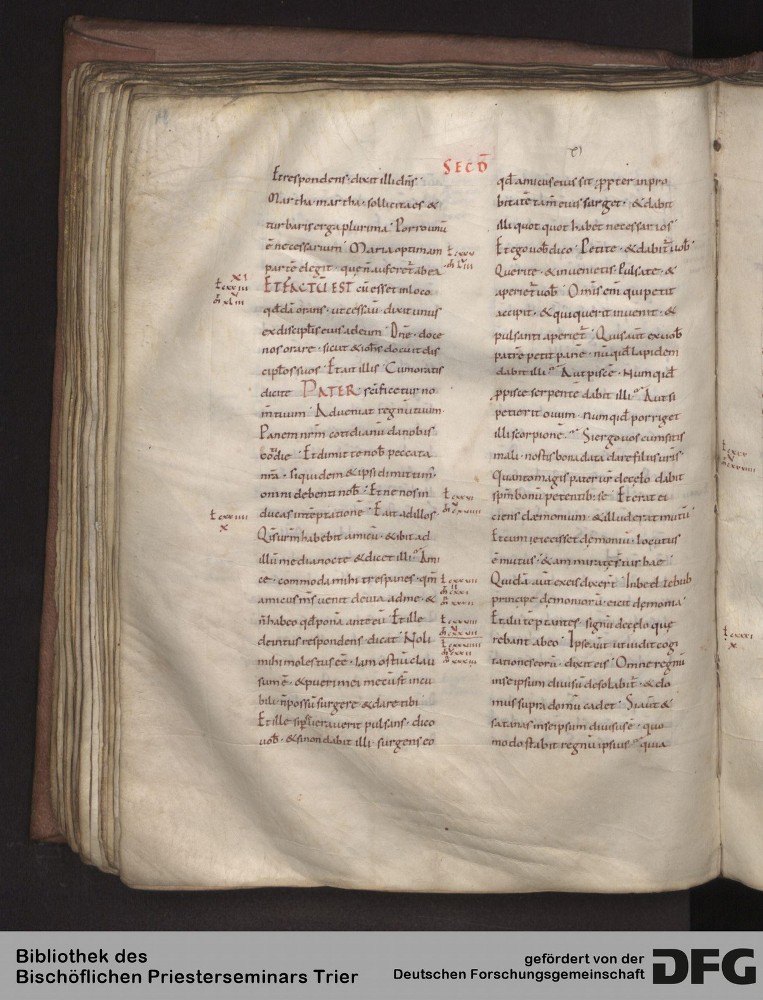 SECD̄
Et respondens · dixit illi dn̄s
Martha · martha · sollicita es &
turbaris erga plurima · Porro unū
ē necessarium · Maria optimam
partē elegit · quę n̄ auferet̄ ab ea
XI
ET FACTŪ EST cū esset in loco
qdā orans · ut cessau̅ · dixit unus
ex discipl̄is eius ad eum · Dn̄e · doce
nos orare · sicut & ioh̄s docuit dis
cipl̄os suos · Et ait illis · Cum oratis
dicite PATER sc̄ificetur no
m̄ tuum · Adueniat regnū tuum ·
Panem nr̄m cotidianū da nobis
hodie · Et dimitte nob̄ peccata
nr̄a · siquidem & ipsi dimittim̄
omni debenti nob̄ · Et ne nos in
ducas in tēptationē · Et ait ad illos ·
Quis ur̄m habebit amicū · & ibit ad
illū media nocte & dicet illi · Ami
ce · commoda mihi tres panes · qm̄
amicus m̄s uenit de uia ad me · &
n̄ habeo qd ponā ante eū · Et ille
deintus respondens · dicat · Noli
mihi molestus eē · Iam ostiū clau
sum ē · & pueri mei mecū st̄ in cu
bili · n̄ possū surgere & dare tibi ·
Et ille si pseuerauerit pulsans · dico
uob̄ · & si non dabit illi · surgens eo
qd amicus eius sit · ppter inpro
bitatē tam̄ eius surget · & dabit
illi quot quot habet necessarios ·
Et ego uob̄ dico · Petite · & dabit̄ uob̄ ·
Querite · & inuenietis · Pulsate · &
aperiet̄ uob̄ · Omīs eni̅ qui petit
accipit · & qui querit inuenit · &
pulsanti aperiet̄ · Quis aut̄ ex uob̄
patrē petit panē · nūquid lapidem
dabit illi · Aut piscē · Numquid
p pisce serpentē dabit illi · Aut si
petierit ouum · numquid porriget
illi scorpionē · Si ergo uos cum sitis
mali · nostis bona data dare filiis uris ·
Quanto magis pater ur̄ de celo dabit
spm̄ bonū petentib: se · Et erat ei
ciens dęmonium · & illud erat mutū ·
Et cum eiecisset demoniū · locutus
ē mutus · & ammiratę st̄ turbae ·
Quidā aut̄ ex eis dixer̄t · In beelzebub
principe demoniorū eicit demonia ·
Et alii tēptantes · signū de celo quę
rebant ab eo · Ipse aut̄ ut uidit cogi
tationes eorū · dixit eis · Omne regnū
in se ipsum diuisū desolabit̄ · & do
mus supra domū cadet · Si aut̄ &
satanas in se ipsum diuisus ē · quo
modo stabit regnū ipsius · quia
Bibliothek des
Bischöflichen Priesterseminars Trier
gefördert von der
Deutschen Forschungsgemeinschaft
DFG